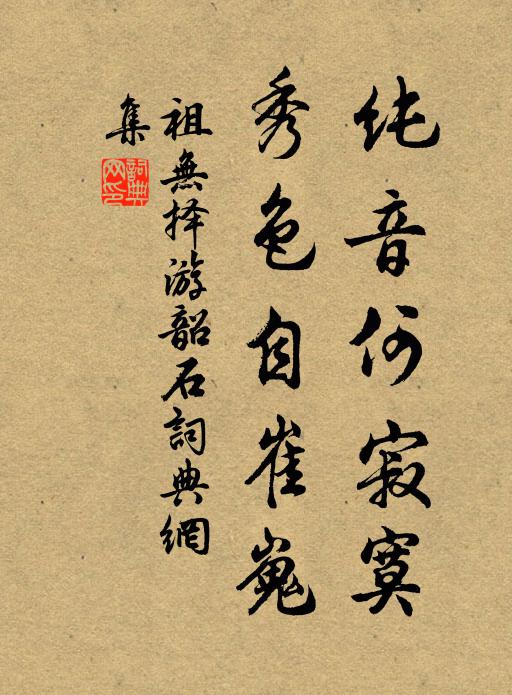 纯音何寂寞
秀色自崔嵬
祖無择游韶石詞典網
集
詞典网印